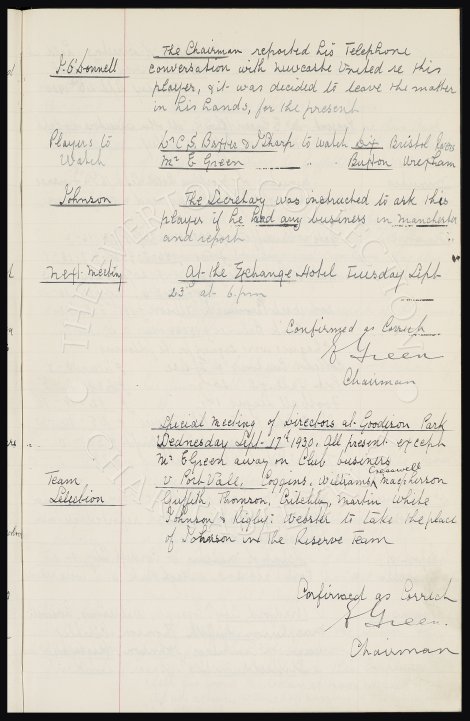 J. O'Donnell
The Chairman reported his Telephone
conversation with Newcastle United re this
player, & it was decided to leave the matter
in his hands, for the present
Players to
Watch
Dr C. S. Baxter & J Sharp to watch Bristol Rovers
Mr E Green " " Buxton Wrexham
Johnson
The Secretary was instructed to ask this
player if he had any business in Manchester
and report
Next Meeting
At the Exchange Hotel Tuesday Sept
23 at 6. pm
Confirmed as Correct
E Green
Chairman
Special Meeting of Directors at Goodison Park
Wednesday Sept 17th 1930. All present except
Mr E Green away on Club business
Team
Selection
v Port Vale, Coggins, Williams Cresswell Macpherson
Griffith, Thomson, Critchley, Martin White
Johnson & Rigby: Webster to take the place
of Johnson in The Reserve Team
Confirmed as Correct
E Green.
Chairman